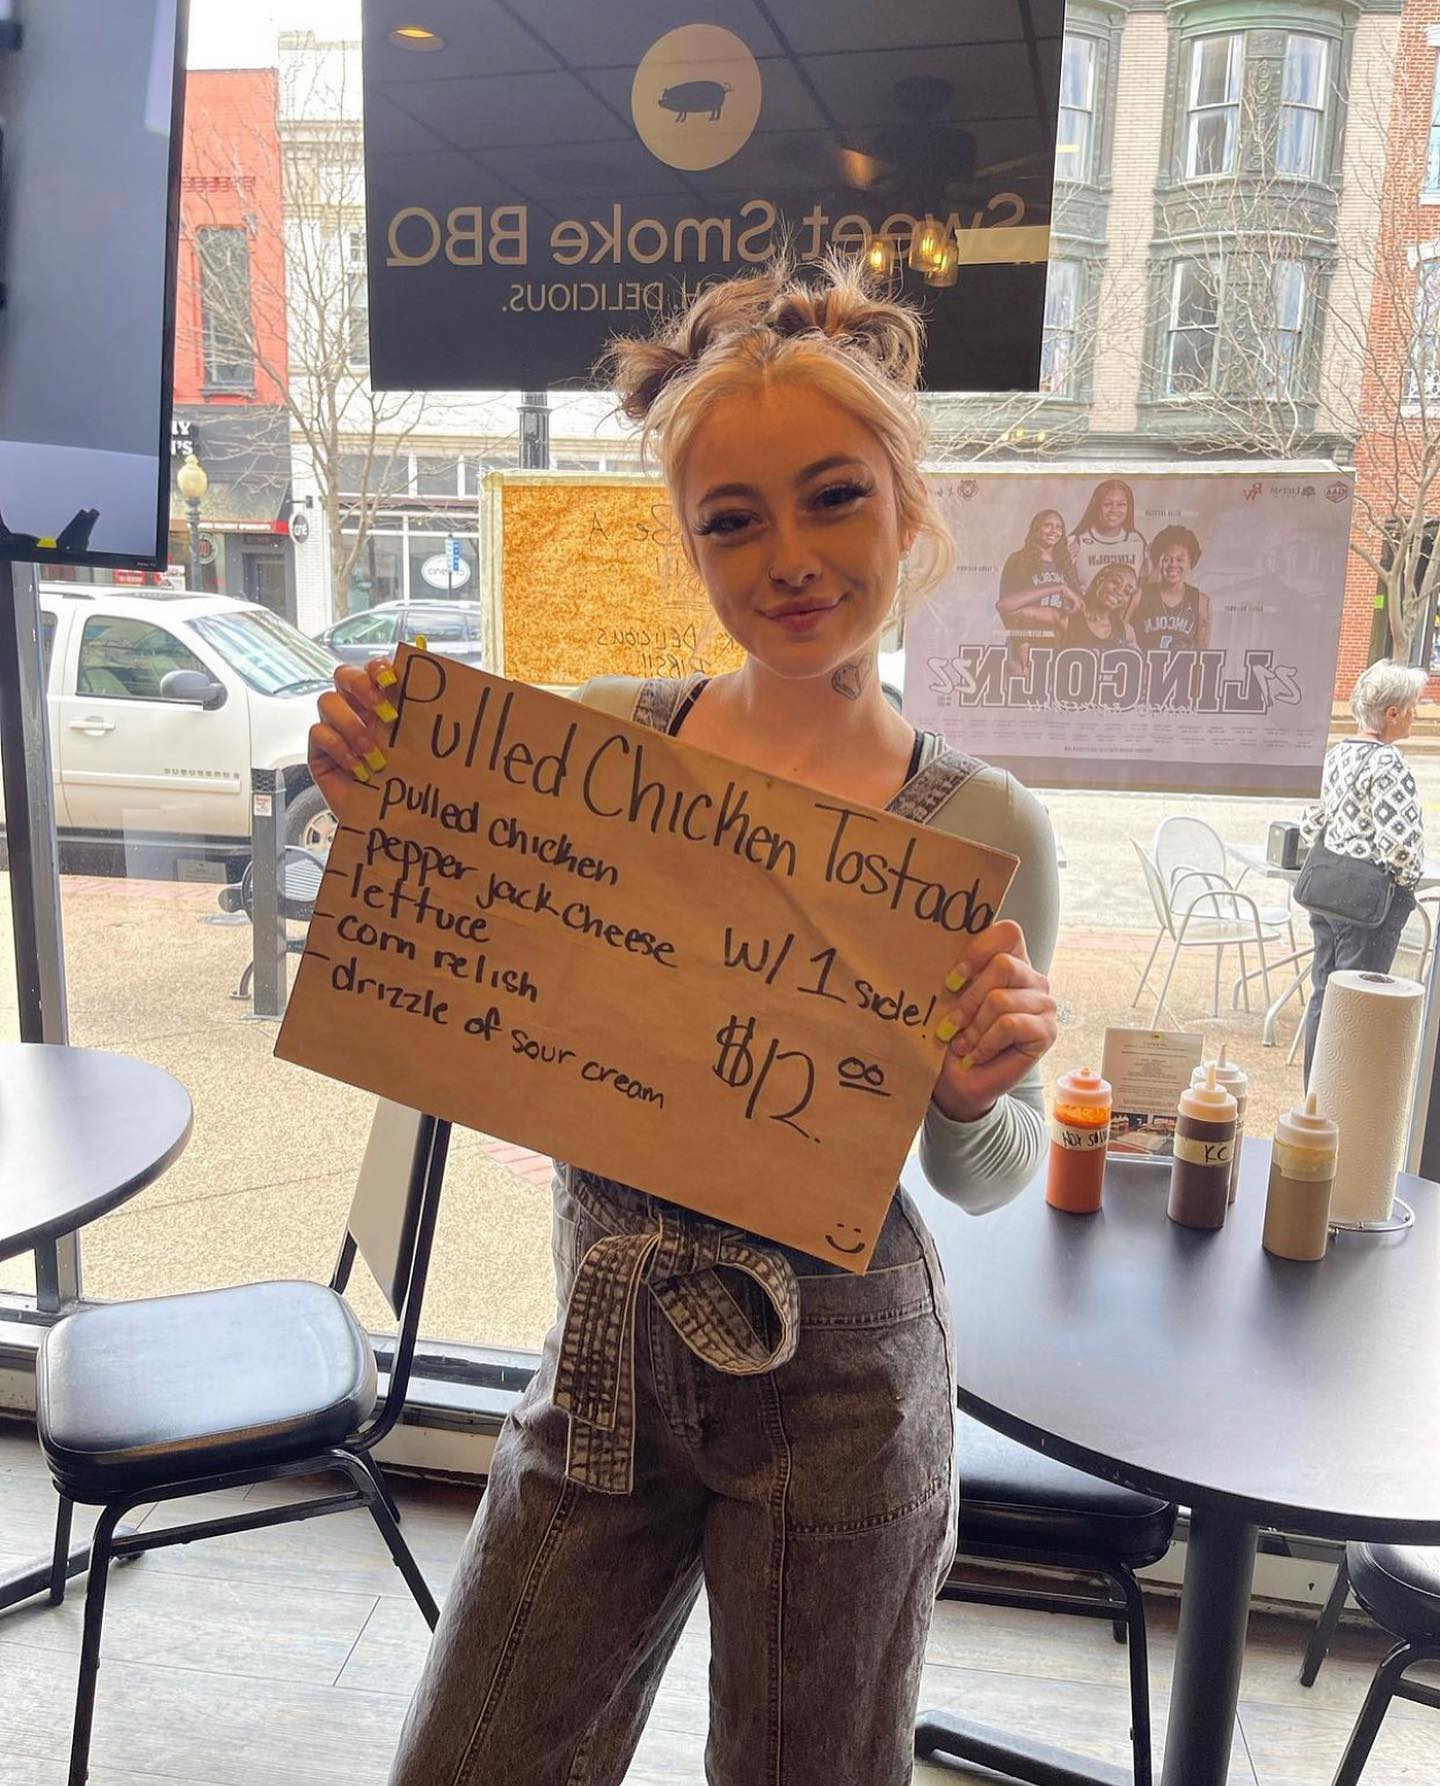 Sweet Smoke BBQ
DELICIOUS.
Be A
DELICIOUS
RIBS!!
LINCOLN
LINCOLN
LINCOLN
SUBURBAN
Pulled Chicken Tostada
-pulled chicken
-pepper jack cheese
-lettuce
-corn relish
-drizzle of sour cream
W/ 1 side!
$12.00
KC